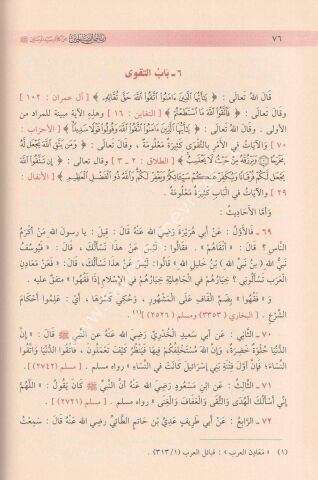 ٧٦
رياض الصالحين من كلام سيد المرسلين ﷺ
٦ ـ بَابُ التقوى
قَالَ اللهُ تَعَالى : ﴿ يَٰٓأَيُّهَا ٱلَّذِينَ ءَامَنُوا۟ ٱتَّقُوا۟ ٱللَّهَ حَقَّ تُقَاتِهِۦ ﴾ [ آل عمران : ١٠٢ ]
وقَالَ تَعَالى : ﴿ فَٱتَّقُوا۟ ٱللَّهَ مَا ٱسْتَطَعْتُمْ ﴾ [ التغابن : ١٦ ] وهذه الآية مبينة للمراد من
الأولى . وقَالَ اللهُ تَعَالى : ﴿ يَٰٓأَيُّهَا ٱلَّذِينَ ءَامَنُوا۟ ٱتَّقُوا۟ ٱللَّهَ وَقُولُوا۟ قَوْلًا سَدِيدًا ﴾ [ الأحزاب :
٧٠ ] والآيَاتُ في الأَمرِ بالتَّقوَى كَثِيرَةٌ مَعْلُومَةٌ . وقَالَ تَعَالى : ﴿ وَمَن يَتَّقِ ٱللَّهَ يَجْعَل لَّهُۥ
مَخْرَجًا ۝ وَيَرْزُقْهُ مِنْ حَيْثُ لَا يَحْتَسِبُ ﴾ [ الطلاق : ٢ ـ ٣ ] وقال تعالى : ﴿ إِن تَتَّقُوا۟ ٱللَّهَ
يَجْعَل لَّكُمْ فُرْقَانًا وَيُكَفِّرْ عَنكُمْ سَيِّـَٔاتِكُمْ وَيَغْفِرْ لَكُمْ وَٱللَّهُ ذُو ٱلْفَضْلِ ٱلْعَظِيمِ ﴾ [ الأنفال :
٢٩ ] والآيَاتُ في البَابِ كَثِيرَةٌ مَعْلُومَةٌ .
وَأَمَّا الأَحَادِيثُ :
٦٩ ـ فَالأَوَّلُ : عَن أَبي هُرَيْرَةَ رَضِيَ اللهُ عَنْهُ قَالَ : قِيلَ : يا رسولَ اللهِ مَن أَكْرَمُ
النَّاسِ ؟ قَالَ : « أَتْقَاهُمْ » . فَقَالُوا : لَيْسَ عَنْ هَذَا نَسْأَلُكَ ، قَالَ : « فَيُوسُفُ
نَبِيُّ اللهِ ابنُ نَبِيِّ اللهِ ابنِ نَبِيِّ اللهِ ابنِ خَلِيلِ اللهِ » قَالُوا : لَيْسَ عَنْ هَذَا نَسْأَلُكَ ، قال : « فَعَنْ مَعَادِنِ
العَرَبِ تَسْأَلُوني ؟ خِيَارُهُمْ في الجَاهِلِيَّةِ خِيَارُهُمْ في الإِسْلامِ إِذَا فَقُهُوا » متفق عليه .
وَ « فَقُهُوا » بِضَمِّ القَافِ عَلَى المَشْهُورِ ، وَحُكِيَ كَسْرُهَا ، أَي : عَلِمُوا أَحْكَامَ
الشَّرْعِ . [ البخاري ( ٣٣٥٣ ) ومسلم ( ٢٥٢٦ ) ] (١) .
٧٠ ـ الثَّاني : عَن أَبي سَعِيدٍ الخُدْرِيِّ رضي الله عَنْهُ عَنِ النَّبيِّ ﷺ قَالَ : « إِنَّ
الدُّنيَا حُلْوَةٌ خَضِرَةٌ ، وإِنَّ اللهَ مُسْتَخْلِفُكُمْ فِيهَا فَيَنْظُرُ كَيْفَ تَعْمَلُونَ ، فَاتَّقُوا الدُّنيَا وَاتَّقُوا
النِّسَاءَ ؛ فَإِنَّ أَوَّلَ فِتْنَةِ بَنِي إِسْرَائِيلَ كَانَتْ في النِّسَاءِ » رواه مسلم . [ مسلم (٢٧٤٢) ]
٧١ ـ الثَّالِثُ : عَنِ ابنِ مَسْعُودٍ رَضِيَ الله عَنْهُ أَنَّ النَّبيَّ ﷺ كَانَ يَقُولُ : « اللَّهُمَّ
إِنِّي أَسْأَلُكَ الهُدَى وَالتُّقَى وَالعَفَافَ وَالغِنَى » رواه مسلم . [ مسلم (٢٧٢١) ]
٧٢ ـ الرَّابِعُ : عَن أَبي طَرِيفٍ عَدِيِّ بنِ حَاتمٍ الطَّائِيِّ رضي الله عنهُ قَالَ : سَمِعْتُ
(١) « مَعَادِن العرب » : قبائل العرب (١/٣١٣) .